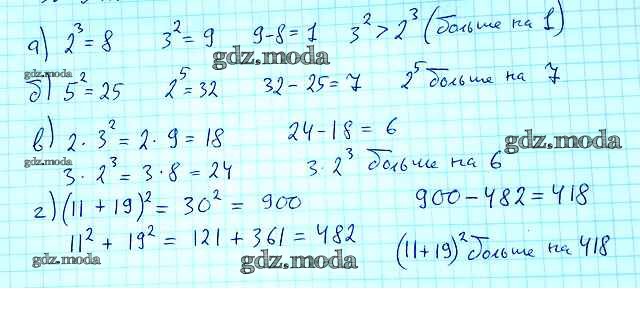 а) 2³ = 8 3² = 9 9-8 = 1 3² > 2³ (больше на 1)
gdz.moda
gdz.moda
б) 5² = 25 2⁵ = 32 32 - 25 = 7 2⁵ больше на 7
в) 2 · 3² = 2 · 9 = 18 24 - 18 = 6
gdz.moda
gdz.moda
3 · 2³ = 3 · 8 = 24 3 · 2³ больше на 6
г) (11 + 19)² = 30² = 900 900 - 482 = 418
11² + 19² = 121 + 361 = 482
(11+19)² больше на 418
gdz.moda
gdz.moda